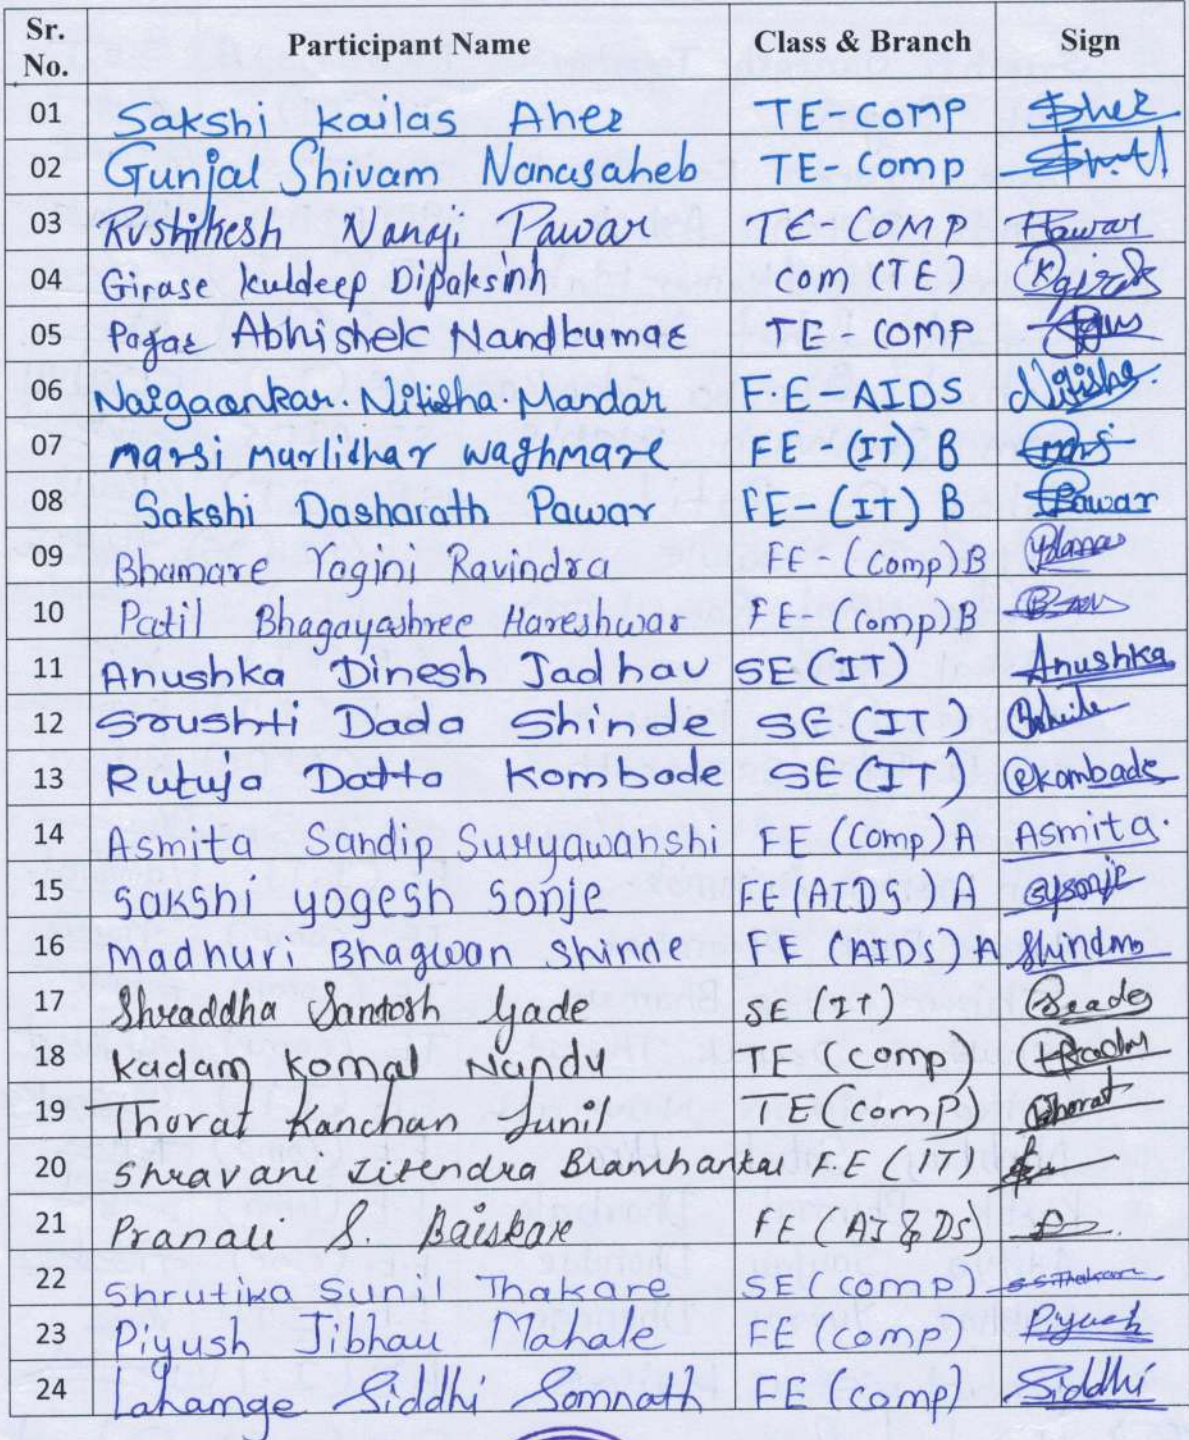 Sr. No. Participant Name Class & Branch Sign
01 Sakshi Kailas Aher TE-COMP Aher
02 Gunjal Shivam Nanasaheb TE-Comp
03 Rushikesh Nanaji Pawar TE-COMP Pawar
04 Girase Kuldeep Dipaksinh com (TE)
05 Pagar Abhishek Nandkumar TE-COMP
06 Naigaonkar. Nitisha. Mandar F.E-AIDS Nitisha.
07 Marsi Murlidhar Waghmare FE-(IT) B
08 Sakshi Dasharath Pawar FE-(IT) B Pawar
09 Bhamare Yogini Ravindra FE-(Comp)B
10 Patil Bhagayashree Hareshwar FE-(Comp)B
11 Anushka Dinesh Jadhav SE(IT) Anushka
12 Sroushti Dada Shinde SE(IT)
13 Rutuja Datta Kombade SE(IT) Rkombade
14 Asmita Sandip Suryawanshi FE (Comp) A Asmita.
15 Sakshi yogesh Sonje FE(AIDS) A sysonje
16 Madhuri Bhagwan Shinde FE (AIDS) A
17 Shraddha Santosh Gade SE (IT)
18 Kadam Komal Nandu TE (comp)
19 Thorat Kanchan Sunil TE(comp) Thorat
20 Shravani Jitendra Bramhankar F.E (IT)
21 Pranali S. Baiskar FE (AI & DS)
22 Shrutika Sunil Thakare SE(comp) S.S.Thakare
23 Piyush Jibhau Mahale FE (comp) Piyush
24 Lahamge Siddhi Somnath FE (comp) Siddhi